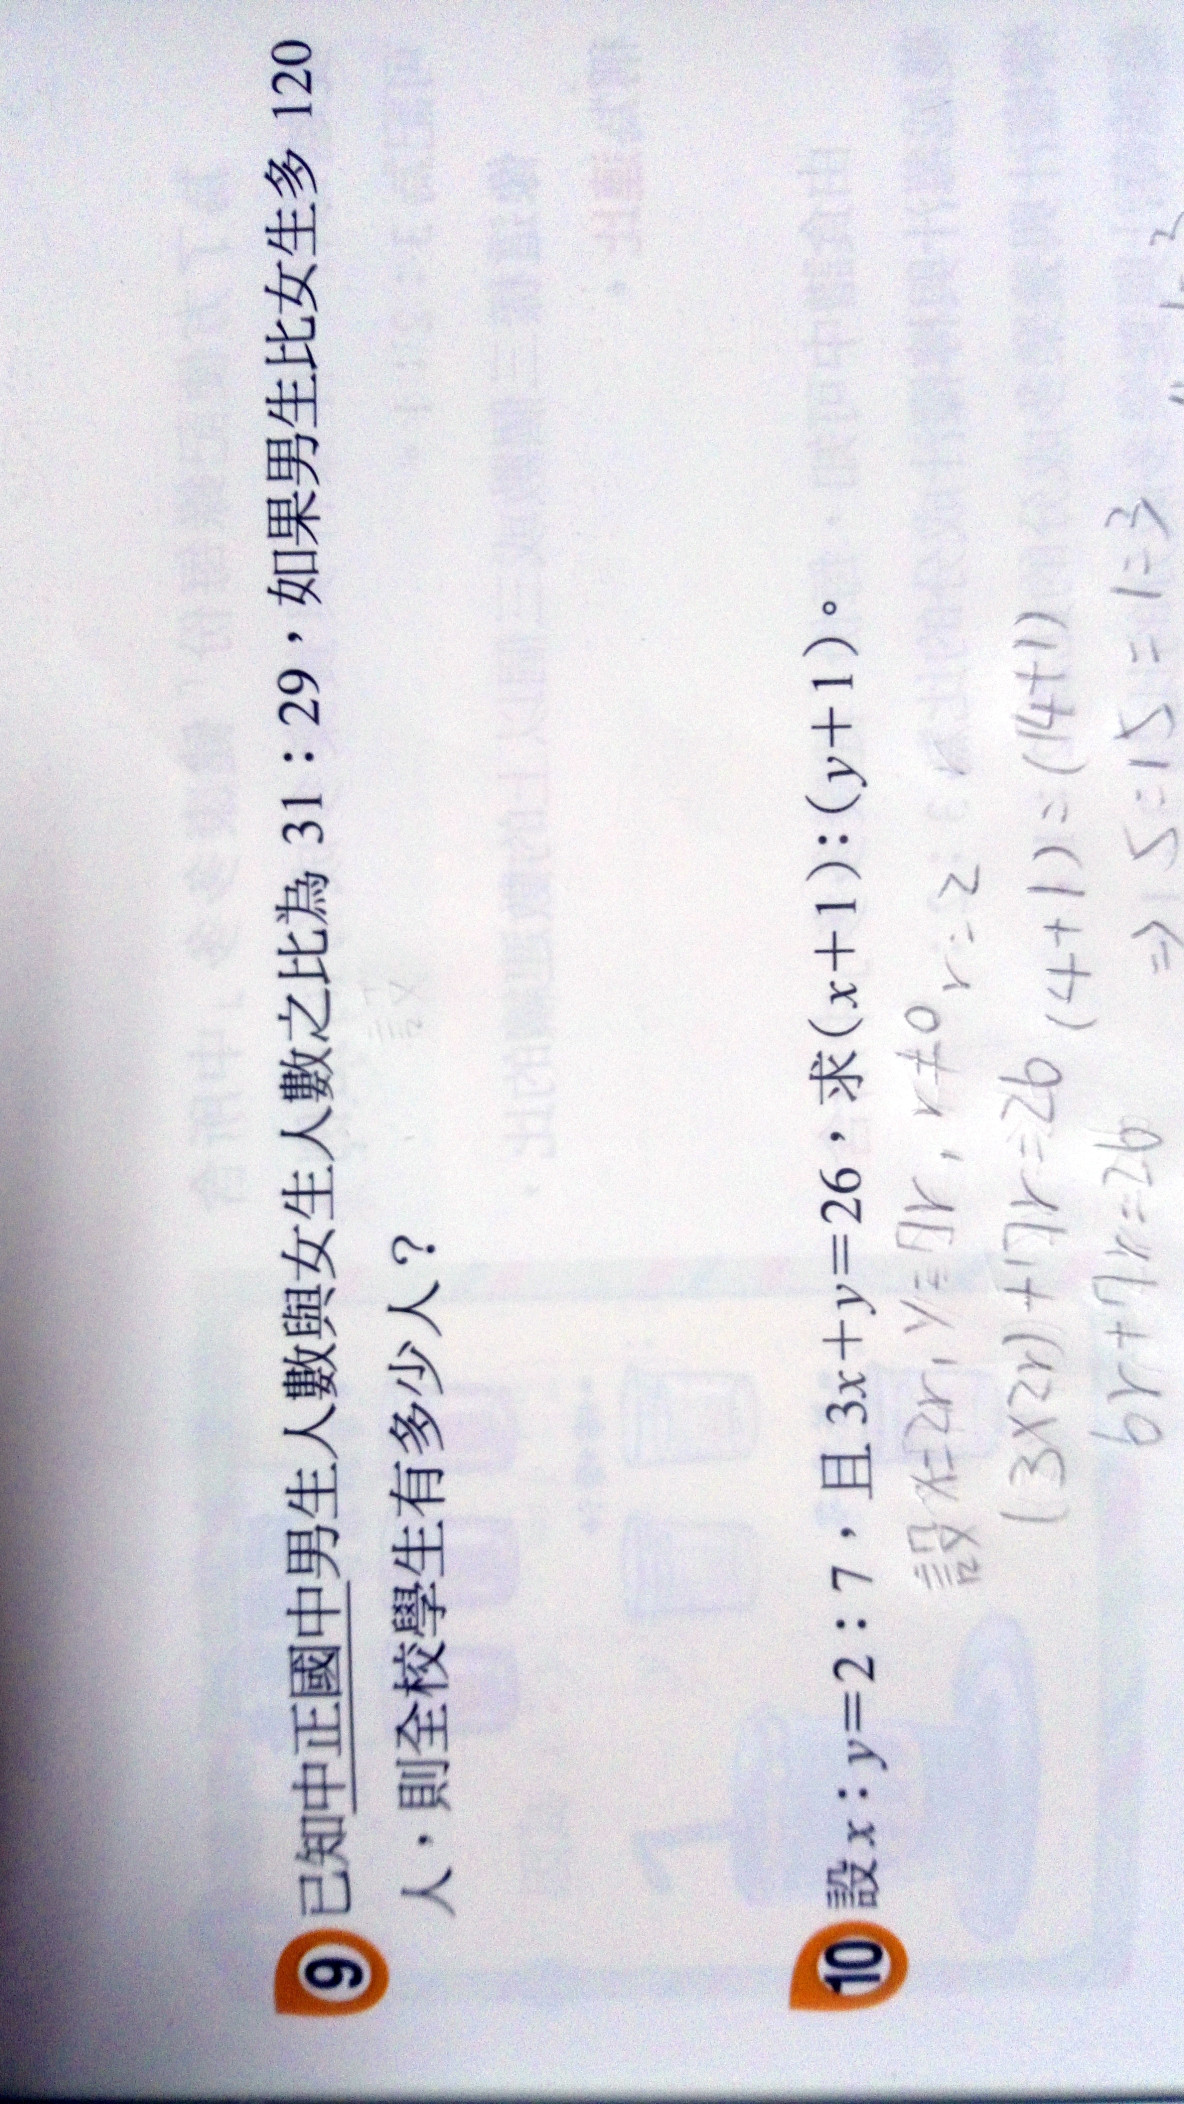 9 已知中正國中男生人數與女生人數之比為 31：29，如果男生比女生多 120
人，則全校學生有多少人？
10 設 x：y＝2：7，且 3x＋y＝26，求(x＋1)：(y＋1)。
設x=2r, y=7r, r≠0 r=2
(3×2r)+7r=26 (4+1)=(14+1)
6r+7r=26 ⇒ 5=15=1=3